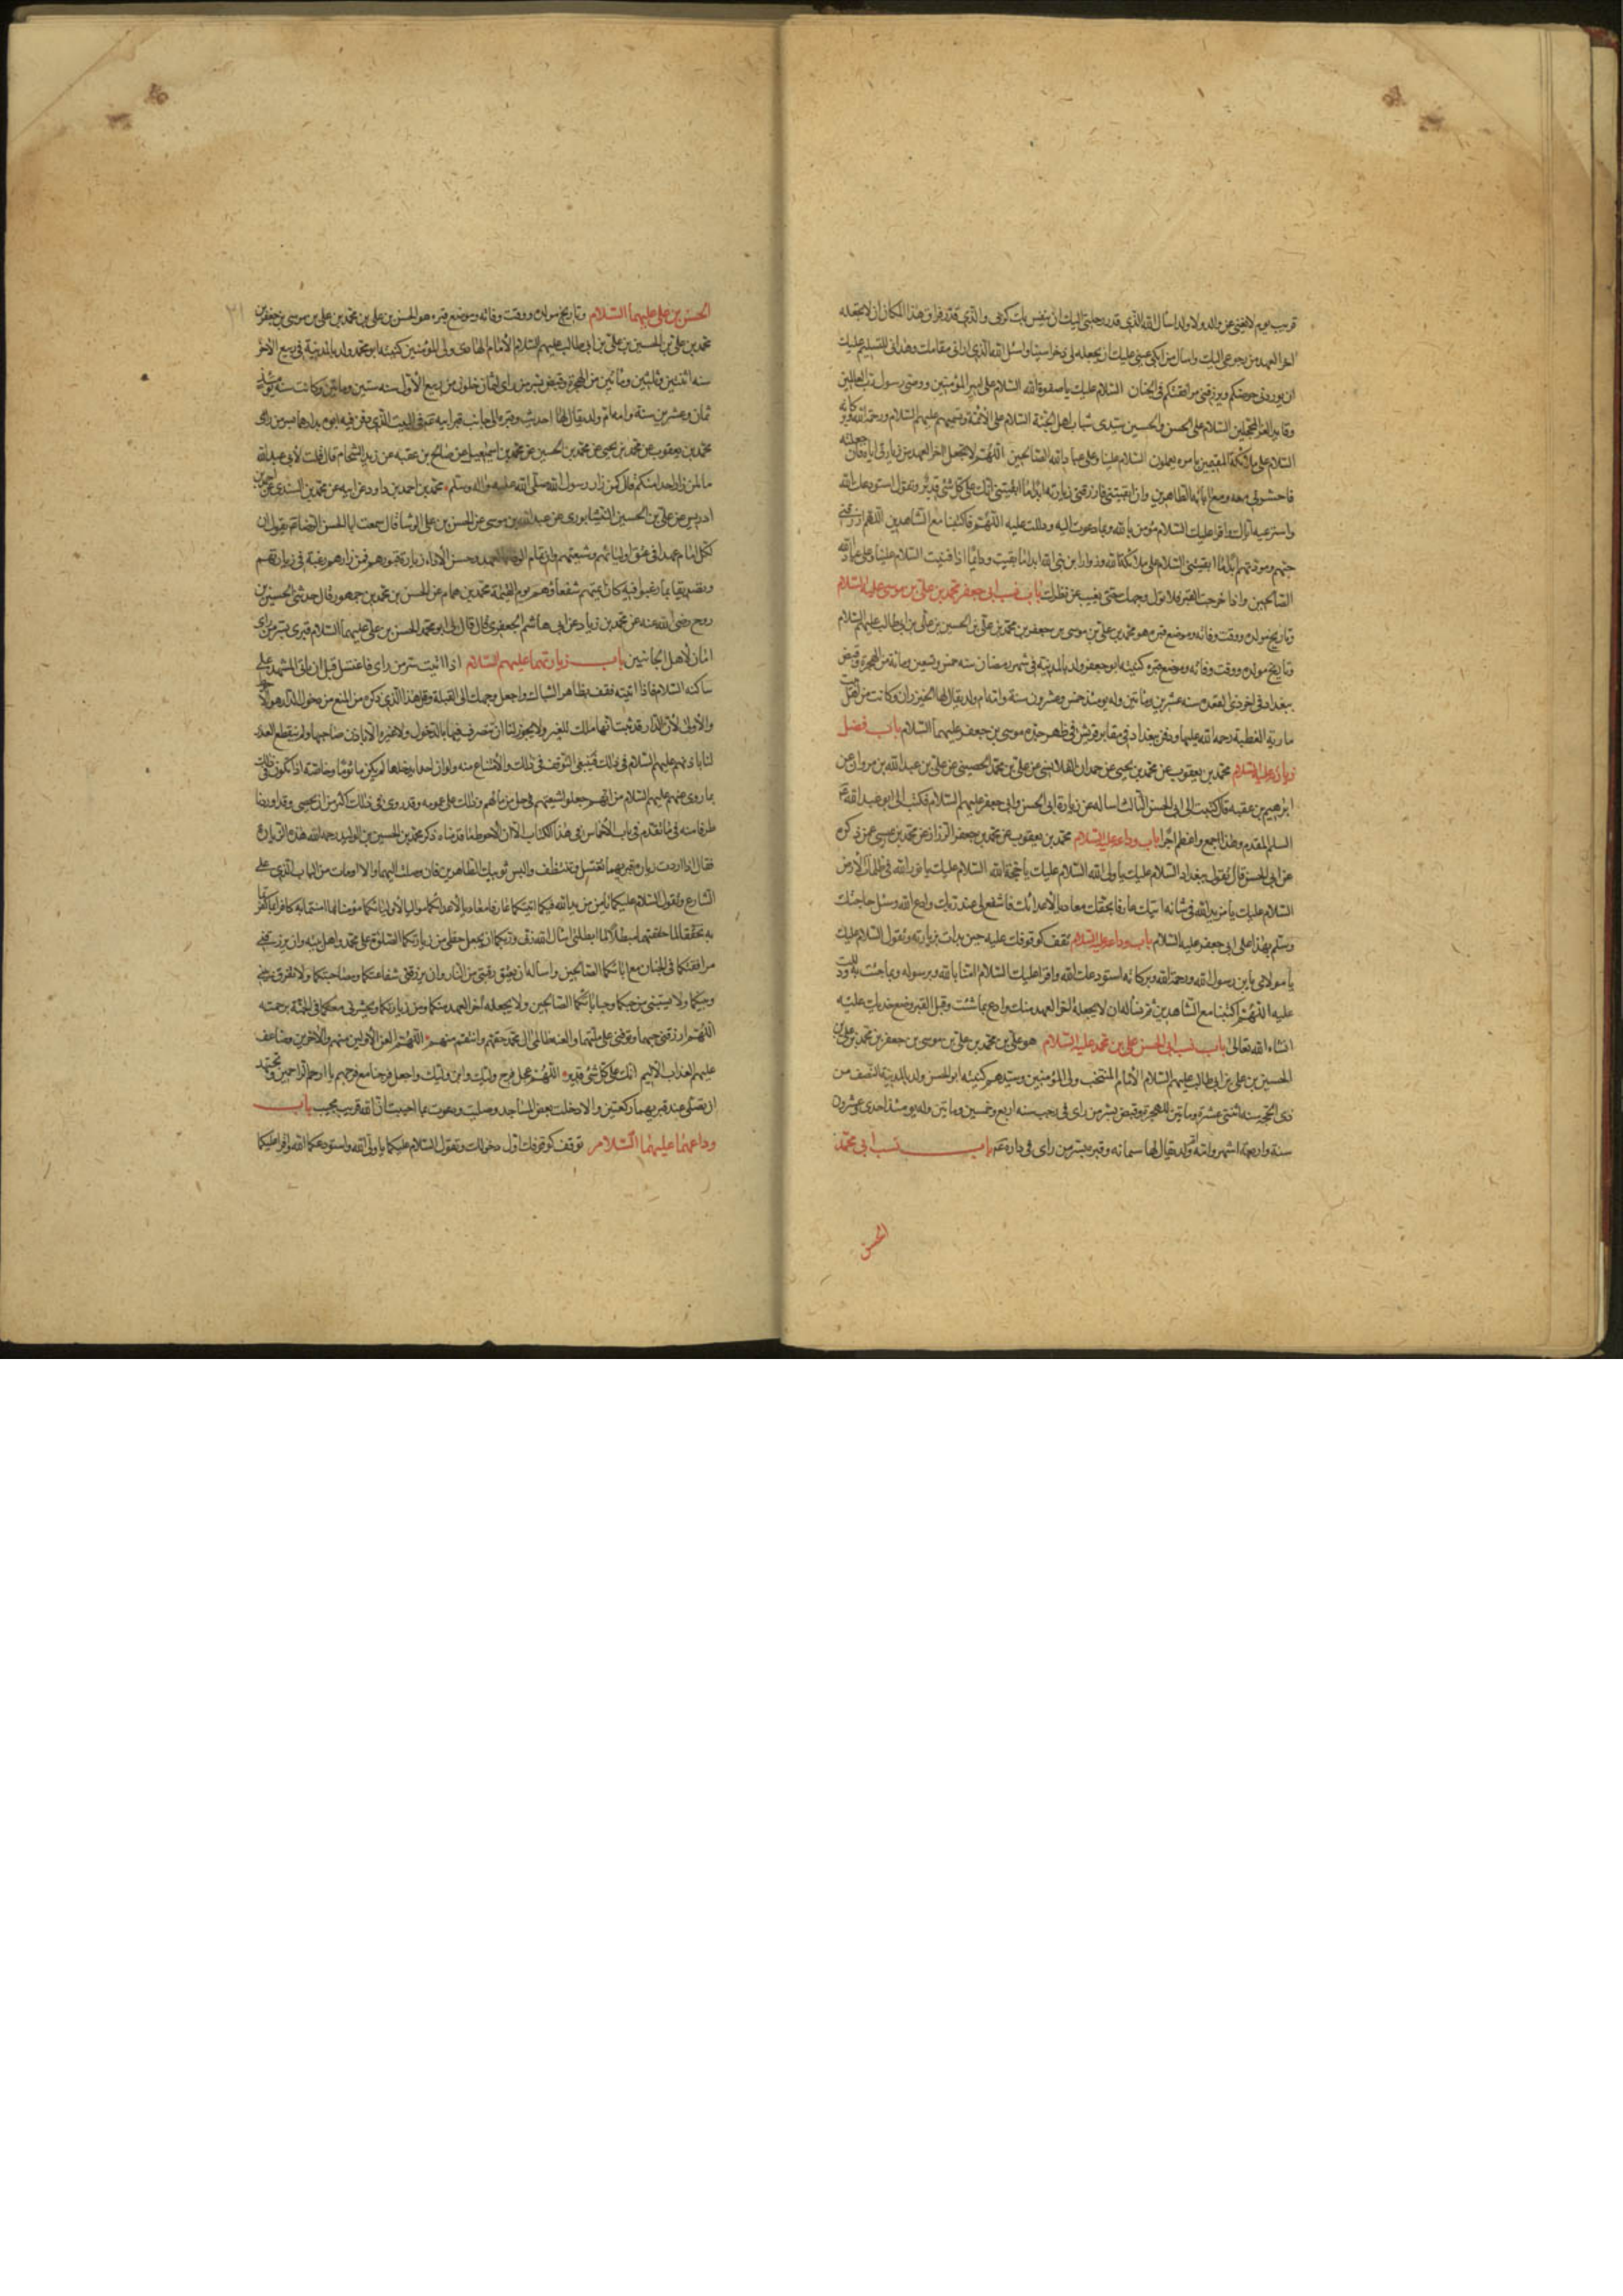 قريب يوم لا يغني عن والد ولا ولد اسال الله الذي قدر رحلتي اليك ان ينفس بك كربي والذي قدر فراق هذا المكان ان لا يجعله
اخر العهد من رجوعي اليك واسال من ابكى عيني عليك ان يجعله لي ذخرا واسئل الله الذي اراني مقامك وهداني للتسليم عليك
ان يوردني حوضكم ويرزقني مرافقتكم في الجنان السلام عليك يا صفوة الله السلام على امير المؤمنين ووصي رسول رب العالمين
وقايد الغر المحجلين السلام على الحسن والحسين سيدي شباب اهل الجنة السلام على الائمة وتسميهم عليهم السلام ورحمة الله وبركاته
السلام على ملائكة الله المقيمين بامره يعملون السلام علينا وعلى عباد الله الصالحين اللهم لا تجعل اخر العهد من زيارتي اياه فان جعلته
فاحشرني معه ومع ابائه الطاهرين وان ابقيتني فارزقني زيارته ابدا ما ابقيتني انك على كل شئ قدير وتقول استودعك الله
واسترعيه اياك واقرا عليك السلام مؤمن بالله وبما دعوت اليه ودللت عليه اللهم فاكتبنا مع الشاهدين اللهم ارزقني
حبهم ومودتهم ابدا ما ابقيتني السلام على ملائكة الله وزوار ابن نبي الله ابدا ما بقيت ودائما اذا فنيت السلام علينا وعلى عباد الله
الصالحين واذا خرجت من القبر فلا تول وجهك حتى يغيب عن نظرك باب نسب ابي جعفر محمد بن علي بن موسى عليه السلام
وتاريخ مولده ووقت وفاته وموضع قبره هو محمد بن علي بن موسى بن جعفر بن محمد بن علي بن الحسين بن علي بن ابي طالب عليهم السلام
وتاريخ مولده ووقت وفاته وموضع قبره كنيته ابو جعفر ولد بالمدينة في شهر رمضان سنه خمس وتسعين ومائة من الهجرة وقبض
ببغداد في اخر ذي القعدة سنه عشرين ومائتين وله يومئذ خمس وعشرون سنة وامه ام ولد يقال لها الخيزران وكانت من اهل بيت
مارية القبطية رحمة الله عليها ودفن ببغداد في مقابر قريش في ظهر جده موسى بن جعفر عليهما السلام باب فضل
زيارته عليه السلام محمد بن يعقوب عن محمد بن يحيى عن حمدان القلانسي عن علي بن محمد الحصيني عن علي بن عبد الله بن مروان عن
ابرهيم بن عقبه قال كتبت الى ابي الحسن الثالث اساله عن زيارة ابي الحسن وابي جعفر عليهم السلام فكتب الى ابو عبد الله عم
السلم المقدم وهذا اجمع واعظم اجرا باب وداعه عليه السلام محمد بن يعقوب عن محمد بن جعفر الرزاز عن محمد بن عيسى عمن ذكره
عن ابي الحسن قال تقول ببغداد السلام عليك يا ولي الله السلام عليك يا حجة الله السلام عليك يا نور الله في ظلمات الارض
السلام عليك يا من بدا لله في شانه اتيتك عارفا بحقك معاديا لاعدائك فاشفع لي عند ربك وادع الله وسئل حاجتك
وسلم بهذا على ابي جعفر عليه السلام باب وداعه عليه السلام تقف كوقوفك عليه حين بدات بزيارته وتقول السلام عليك
يا مولاي يا بن رسول الله ورحمة الله وبركاته استودعك الله واقرا عليك السلام امنا بالله وبرسوله وبما جئت به ودللت
عليه اللهم اكتبنا مع الشاهدين ثم تسأله ان لا يجعله اخر العهد منك وادع بما شئت وقبل القبر وضع خديك عليه
انشاء الله تعالى باب نسب ابي الحسن علي بن محمد عليه السلام هو علي بن محمد بن علي بن موسى بن جعفر بن محمد بن علي بن
الحسين بن علي بن ابي طالب عليهم السلام الامام المنتخب ولي المؤمنين وسيدهم كنيته ابو الحسن ولد بالمدينة للنصف من
ذي الحجه سنه اثنتي عشرة وماتين للهجرة وقبض بسر من راى في رجب سنه اربع وخمسين وماتين وله يومئذ احدى وعشرون
سنة واربعة اشهر وامه ام ولد يقال لها سمانه وقبره بسر من راى في داره عم باب نسب ابي محمد
الحسن
الحسن بن علي عليهما السلام وتاريخ مولده ووقت وفاته وموضع قبره هو الحسن بن علي بن محمد بن علي بن موسى بن جعفر بن
محمد بن علي بن الحسين بن علي بن ابي طالب عليهم السلام الامام الهادي ولي المؤمنين كنيته ابو محمد ولد بالمدينة في ربيع الاخر
سنه اثنتين وثلثين ومائتين من الهجرة وقبض بسر من راى لثمان خلون من ربيع الاول سنه ستين ومائتين وكانت سنه يومئذ
ثمان وعشرين سنة وامه ام ولد يقال لها حديث وقبره الى جانب قبر ابيه عم في البيت الذي دفن فيه ابوه بدارهما بسر من راى
محمد بن يعقوب عن محمد بن يحيى عن محمد بن الحسين عن محمد بن اسمعيل عن صالح بن عقبه عن زيد الشحام قال قلت لابي عبد الله
ما لمن زار احدا منكم قال كمن زار رسول الله صلى الله عليه واله وسلم محمد بن احمد بن داود عن ابيه عن محمد بن السندي عن احمد بن
ادريس عن علي بن الحسين النيشابوري عن عبد الله بن موسى عن الحسن بن علي الوشا قال سمعت ابا الحسن الرضا عم يقول ان
لكل امام عهدا في عنق اوليائهم وشيعتهم وان من تمام الوفاء بالعهد وحسن الاداء زيارة قبورهم فمن زارهم رغبة في زيارتهم
وتصديقا بما رغبوا فيه كان ائمتهم شفعاؤهم يوم القيمة محمد بن همام عن الحسن بن محمد بن جمهور قال حدثني الحسين بن
روح رضي الله عنه عن محمد بن زياد عن ابي هاشم الجعفري قال قال لي ابو محمد الحسن بن علي عليهما السلام قبري بسر من راى
امان لاهل الجانبين باب زيارتهما عليهم السلام اذا اتيت سر من راى فاغتسل قبل ان تاتي المشهد على
ساكنه السلام فاذا اتيته فقف بظاهر الشباك واجعل وجهك الى القبلة وقل هذا الذي ذكره من المنع من دخول الدار هو الاحوط
والاولى لان الدار قد ثبت انها ملك للغير ولا يجوز لنا ان نتصرف فيها بالدخول ولا غيره الا باذن صاحبها ولم ينقطع العذر
لنا باذنهم عليهم السلام في ذلك فينبغي التوقف في ذلك والامتناع منه ولو ان احدا يدخلها لم يكن ماثوما وخاصة اذا تكون في ذلك
بما روي عنهم عليهم السلام من انهم جعلوا شيعتهم في حل من مالهم وذلك على عمومه وقد روي في ذلك اكثر من ان يحصى وقد اوردنا
طرفا منه في ما تقدم في باب الاخماس في هذا الكتاب الا ان الاحوط ما قدمناه ذكر محمد بن الحسن بن الوليد رحمه الله هذه الزيارة
فقال اذا اردت زيارة قبريهما تغتسل وتتنظف والبس ثوبيك الطاهرين فان وصلت اليهما والا اومات من الباب الذي على
الشارع وتقول السلام عليكما يا من بدا لله فيكما اتيتكما عارفا معاديا لاعدائكما مواليا لاوليائكما مؤمنا بما امنتما به كافرا بما كفرتما
به محققا لما حققتما مبطلا لما ابطلتما اسال الله ربي وربكما ان يجعل حظي من زيارتكما الصلوة على محمد واهل بيته وان يرزقني
مرافقتكما في الجنان مع ابائكما الصالحين واساله ان يعتق رقبتي من النار وان يرزقني شفاعتكما ومصاحبتكما ولا يفرق بيني
وبينكما ولا يسلبني من حبكما وحب ابائكما الصالحين ولا يجعله اخر العهد منكما ومن زيارتكما ويحشرني معكما في الجنة برحمته
اللهم ارزقني حبهما وتوفني على ملتهما والعن ظالمي ال محمد حقهم وانتقم منهم اللهم العن الاولين منهم والاخرين وضاعف
عليهم العذاب الاليم انك على كل شئ قدير اللهم عجل فرج وليك وابن وليك واجعل فرجنا مع فرجهم يا ارحم الراحمين وتجتهد
ان تصلي عند قبريهما ركعتين والا دخلت بعض المساجد وصليت ودعوت بما احببت ان الله قريب مجيب باب
وداعهما عليهما السلام توقف كوقوفك اول دخولك وتقول السلام عليكما يا ولي الله واستودعكما الله واقرا عليكما